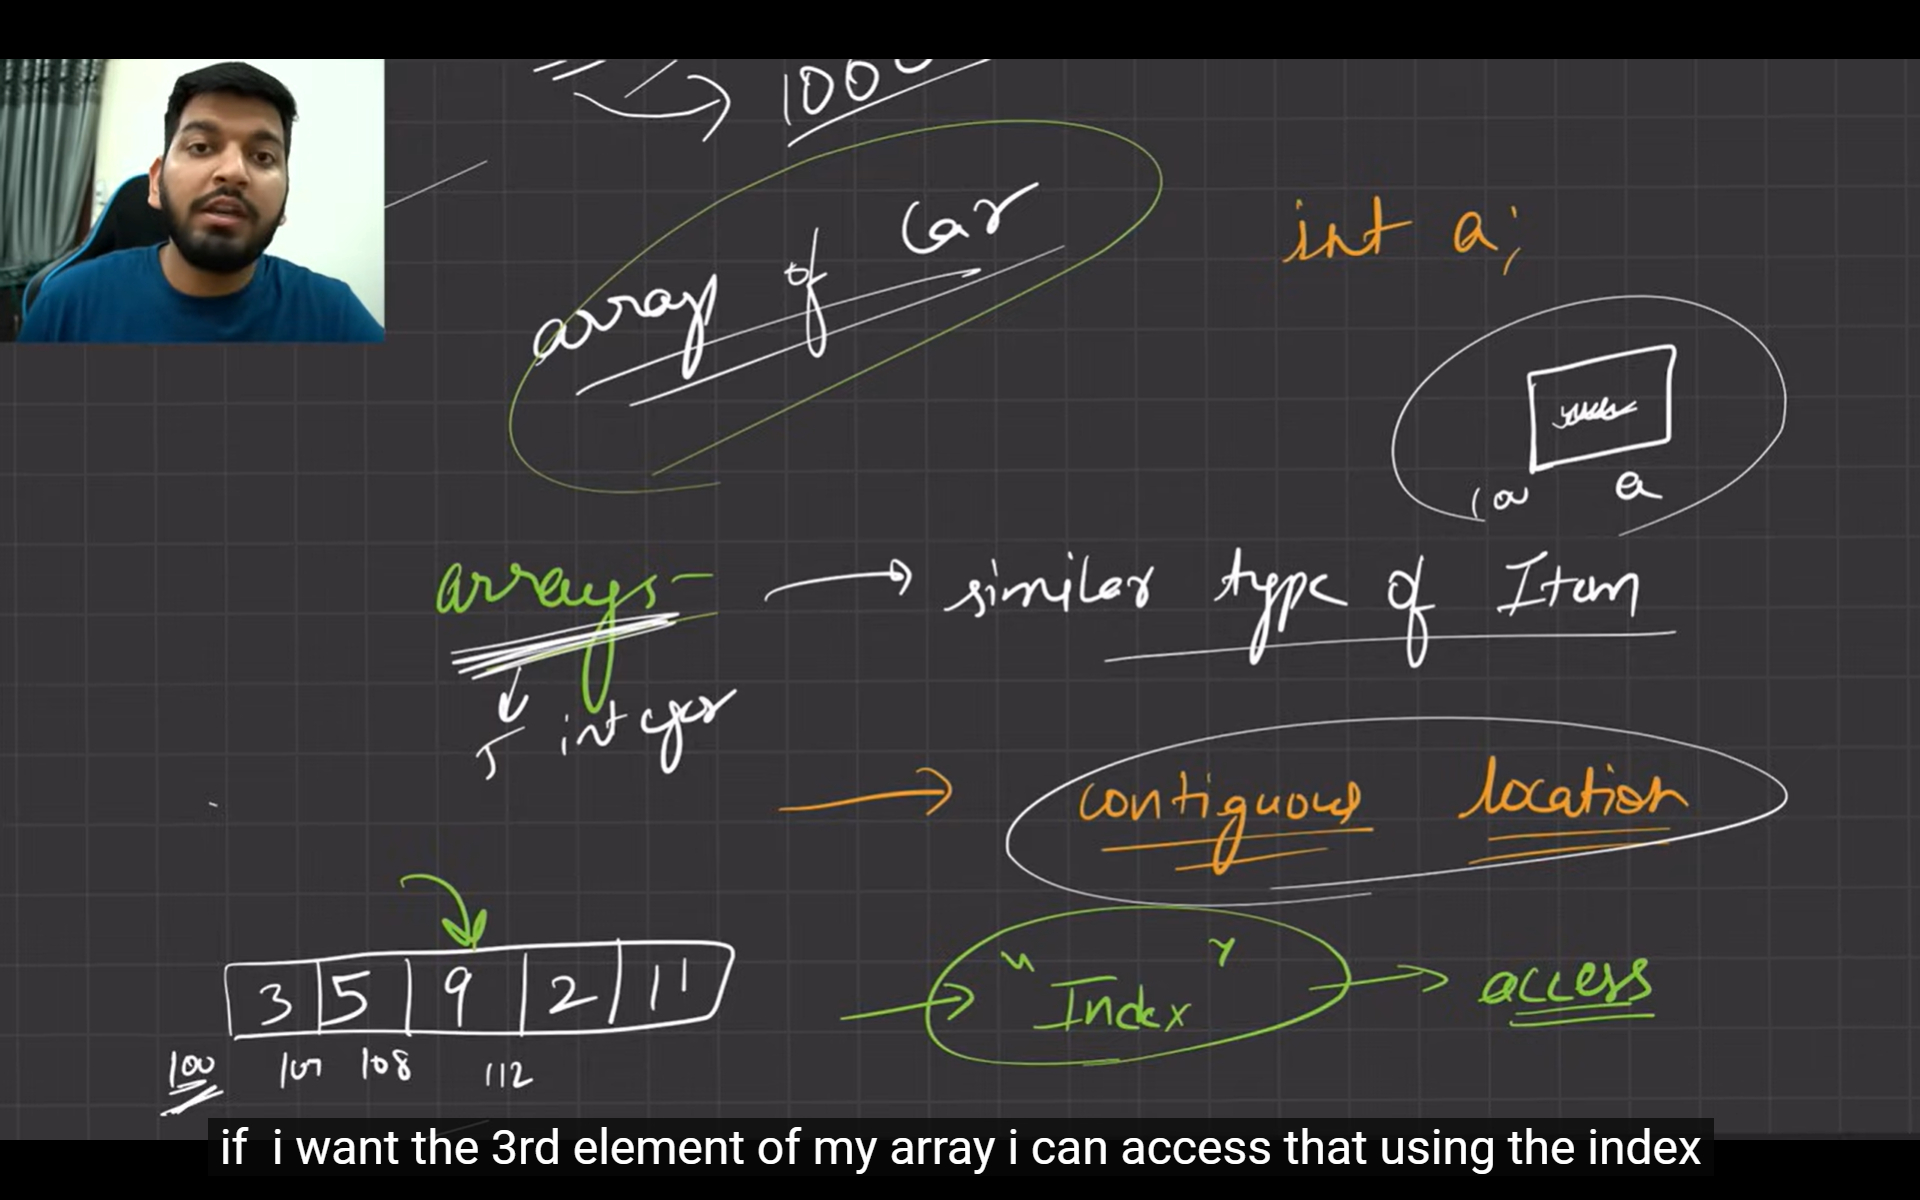 100
array of Car
int a;
a
arrays - → similar type of Item
5 integer
→ contiguous location
3 5 9 2 11
→ "Index" → access
100 108 112
if i want the 3rd element of my array i can access that using the index